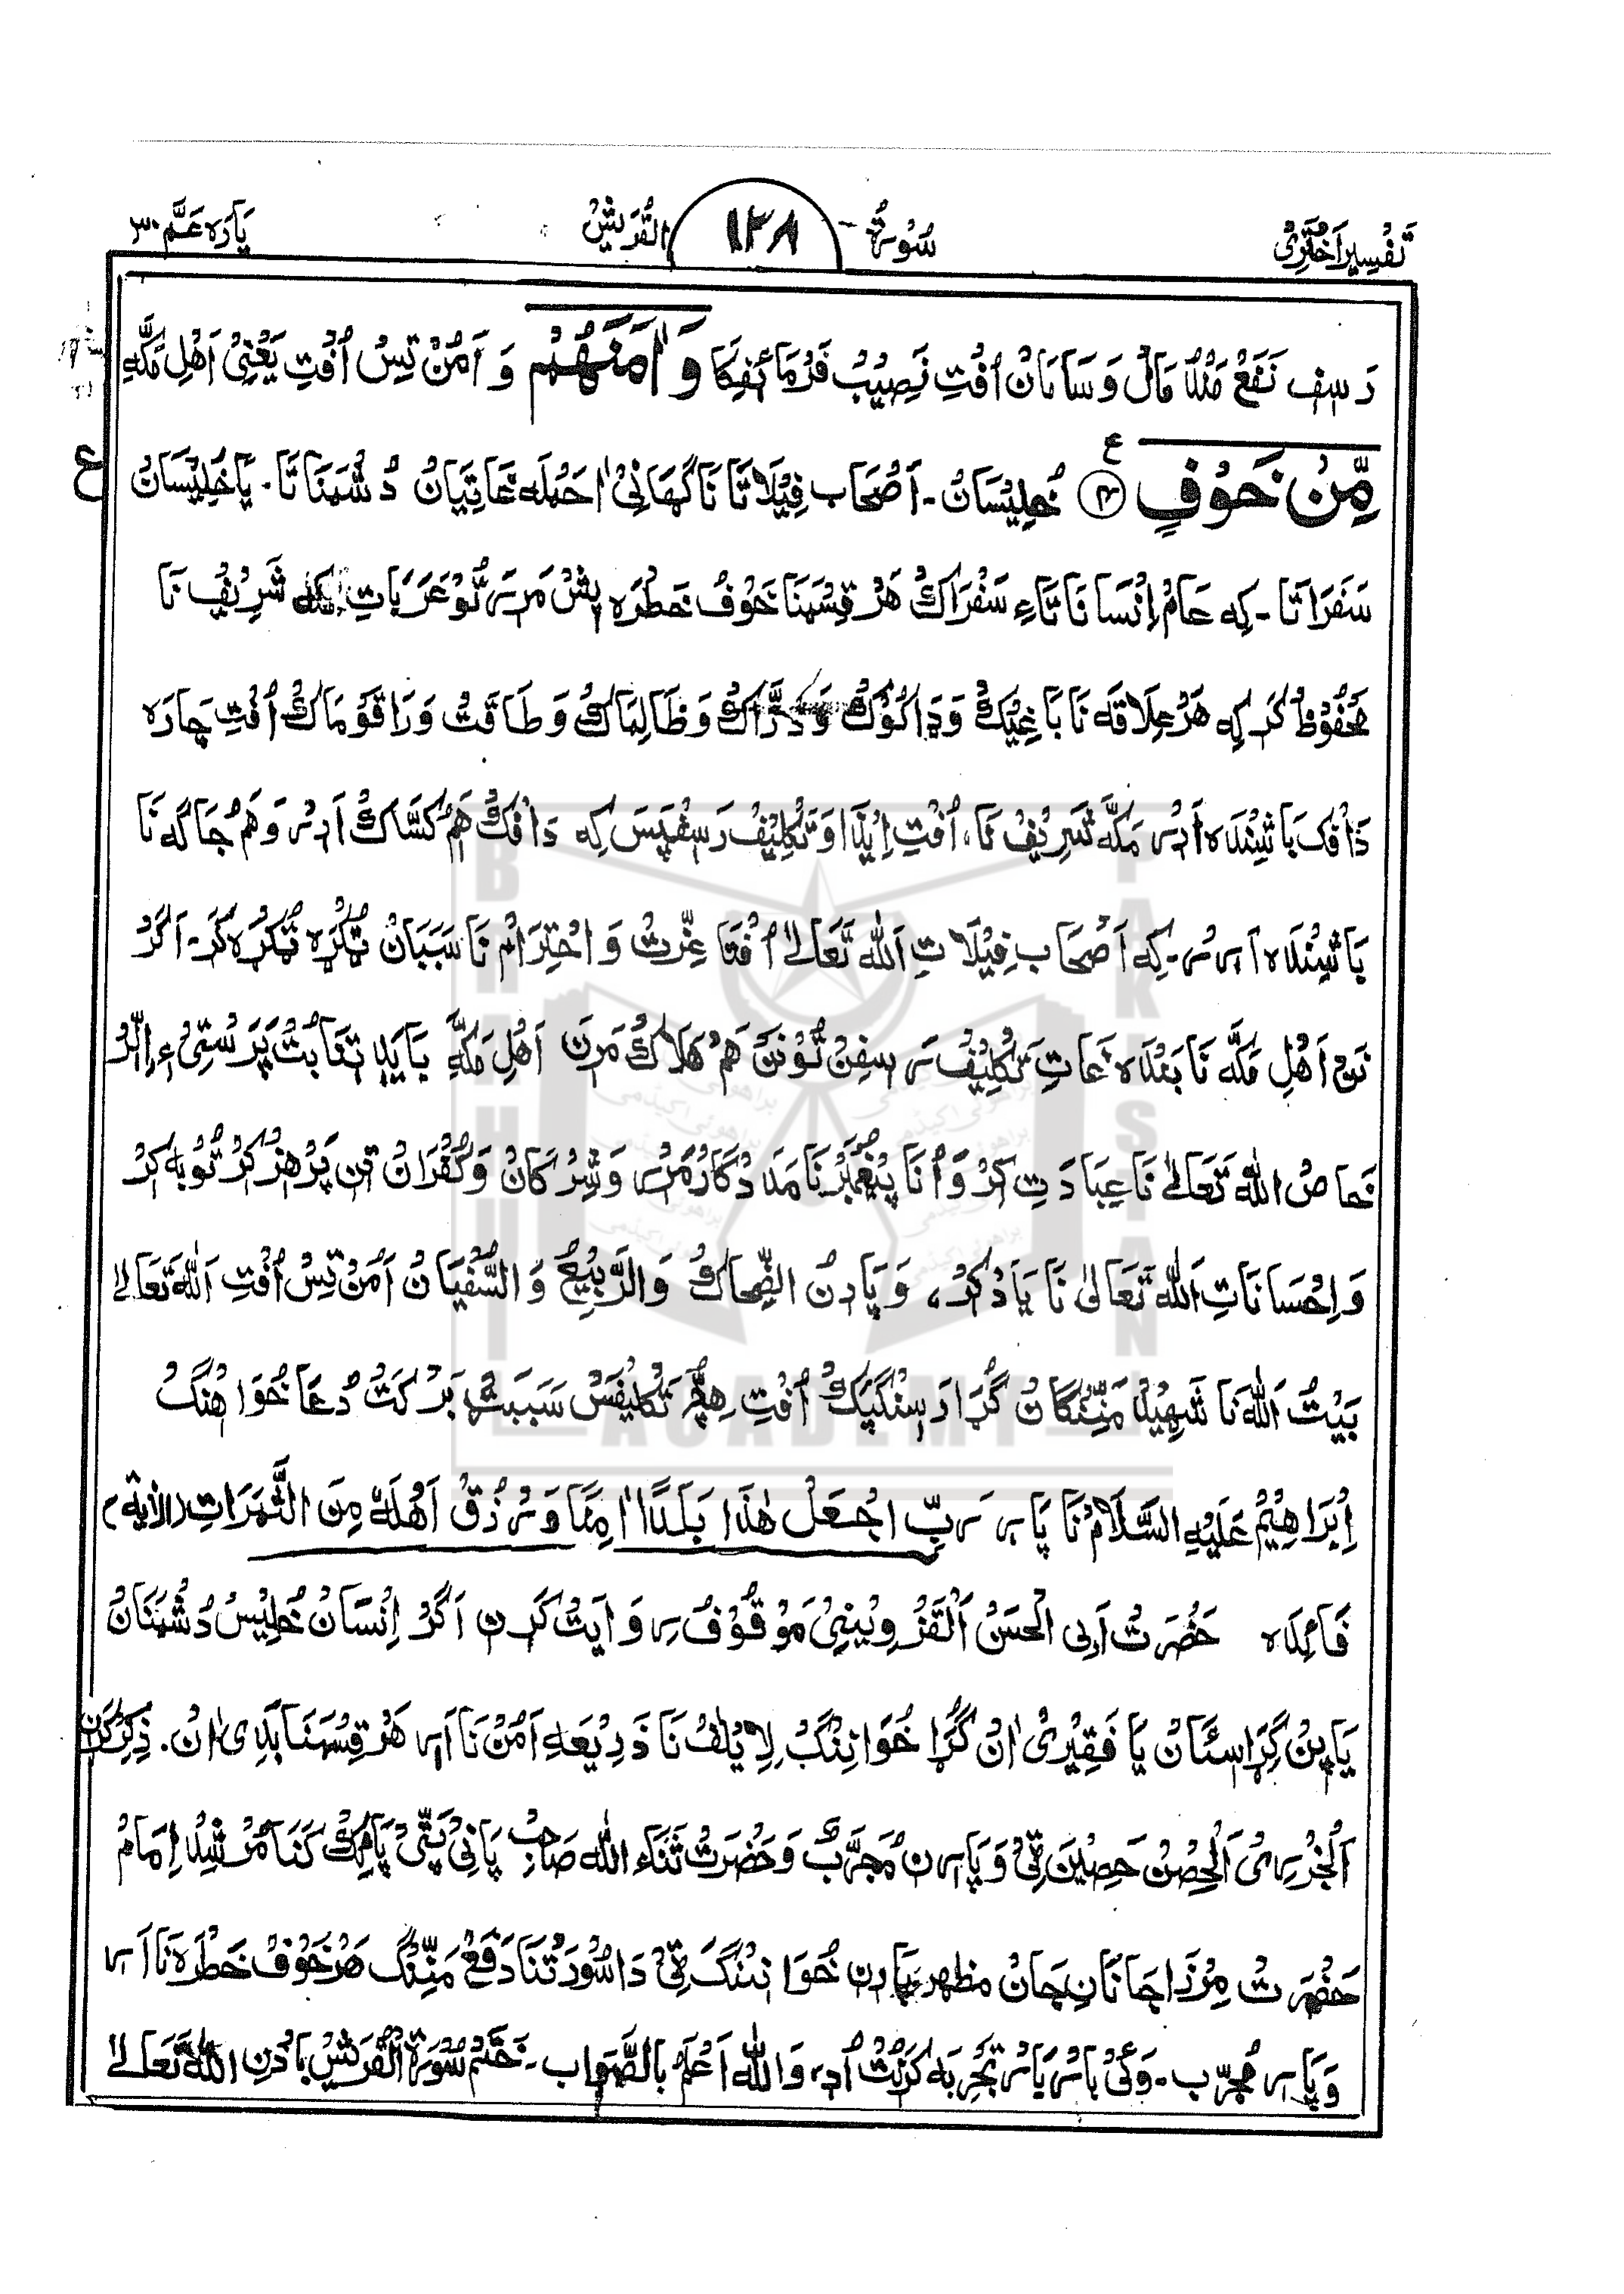 تَفْسِیر اَخْتَرِیْ
سُوْرَۃُ
۱۲۸
القُرَیْشْ
پَارَہ عَمَّ ۳۰
رَسفِ نَفَعْ مَثْلاً مَالْ وَ سَامَانْ اُفْتِ نَصِیْبْ فَرْمَائِفِکَا وَاٰمَنَھُمْ وَ اَمُنْ تِسْ اُفْتِ یَعْنِیْ اَھْلِ مَکَّہِ
مِّنْ خَوْفٍ ۴ ع خُلِیْسَانْ - اَصْحَابِ فِیْلَاتَا نَاگَھَانِیْ اٰحَمْلَہ غَاتِیَانْ دُشْمَنَاتَا - یَا خُلِیْسَانْ
ع
سَفَرَاتَا - کِہ عَامْ اِنْسَانَاتَاءِ سَفَرَاکْ ھَرْ قِسْمَنَا خَوْفْ خَطْرَہ پِشْ مَرِیَہ تُوْ عَرَبَاتِ مَکَّہ شَرِیْفْ نَا
مَحْفُوْظْ کَرِ کِہ ھَرْ عِلَاقَہ نَا بَاغِیْکْ وَ ڈَاکُوْکْ وَ دُزَّاکْ وَ ظَالِمَاکْ وَ طَاقَتْ وَرَا قَوْمَاکْ اُفْتِ چَارَہ
دَافْکْ بَاشِنْدَہ اَرِیْر مَکَّہ شَرِیْفْ نَا، اُفْتِ اِیْذَا وَ تَکْلِیْفْ رَسفْپَسْ کِہ دَافْکْ ھَمْ کَسَّاکْ اَرِیْر وَ ھَمْ جَاگَہ نَا
بَاشِنْدَہ اَرِیْر - کِہ اَصْحَابِ فِیْلَاتِ اَللہ تَعَالےٰ اُفْتَا عِزَّتْ وَ اِحْتِرَامْ نَا سَبَبَانْ ٹُکْرَہ ٹُکْرَہ کَرِ - اَگَرْ
نَنْ اَھْلِ مَکَّہ نَا بَعْدَہ غَاتِ تَکْلِیْفْ رَسفِنْ تُوْ نَنْ ھَمْ ھَلَاکْ مَرِنَ اَھْلِ مَکَّہِ بَایَدِ تَنَا بُتْ پَرَسْتِیْءِ اِلَّرْ
خَاصْ اللہ تَعَالےٰ نَا عِبَادَتِ کَرْ وَ اُنَا پِیْغَمْبَرْ نَا مَدَدْگَارْ مَرِیْر وَ شِرْکَانْ وَ کُفْرَانْ تِنِ پَرْھِزْ کَرْ تُوْبَہ کَرْ
وَ اِحْسَانَاتِ اَللہ تَعَالیٰ نَا یَادْ کَرْ، وَ پَارِنْ الضِّحَاکْ وَ الرَّبِیْعْ وَ السُّفْیَانْ اَمَنْ تِسْ اُفْتِ اَللہ تَعَالےٰ
بَیْتُ اَللہ نَا شَھِیْدْ مَنِّنْگَانْ گُڑَا رَسِنْگَپَکْ اُفْتِ ھِچَّرْ تَکْلِیْفَسْ سَبَبَٹْ بَرْکَتْ دُعَا خُوَاھِنْگْ
اِبْرَاھِیْمْ عَلَیْہِ السَّلَامْ نَا پَارِیْ رَبِّ اجْعَلْ ھٰذَا بَلَدًا اٰمِنًا وَّ رْزُقْ اَھْلَہٗ مِنَ الثَّمَرَاتِ (الآیۃ)
فَائِدَہ حَضْرَتْ اَبِی الْحَسَنْ اَلْقَزْوِیْنِیْ مَوْقُوْفْ رِوَایَتْ کَرِنِ اَگَرْ اِنْسَانْ خُلِیْسْ دُشْمَنَانْ
یَا پِنْ گِڑَاسَّانْ یَا فَقِیْرِیْ اٰنْ گُڑَا خُوَانِنْگْ لِاِیْلٰفْ نَا ذَرِیْعَہِ اَمْنْ نَا اَرِ ھَرْ قِسْمَنَا بَدِیْ اٰنْ. ذِکْرْ کَرِنْ
اَلْجَزْرِیْ اَلْحِصْنْ حَصِیْنَ ٹِیْ وَ پَارِنْ مُجَرَّبْ وَ حَضْرَتْ ثَنَاءَ اللہ صَاحِبْ پَانِیْ پَتِّیْ پَائِکْ کَنَا مُرْشِدْ اِمَامْ
حَضْرَتْ مِرْزَا جَانَانِ جَانْ مظھر پَارِنِ خُوَانِنْگَ ٹِیْ دَا سُوْرَتْنَا دَفْعْ مَنِّنْگْ ھَرْ خَوْفْ خَطْرَہ نَا اَرِ
وَ پَارِ مُجَرَّبْ - وَکِیْ بَارْ یَارْ تَجْرِبَہ کَرِنُٹْ اُدِ، وَ اللہ اَعْلَمْ بِالصَّوَابِ - خَتْمْ سُوْرَۃْ القُرَیْشْ بِاِذْنِ اللہ تَعَالےٰ
BRAHUI
ACADEMY
PAKISTAN